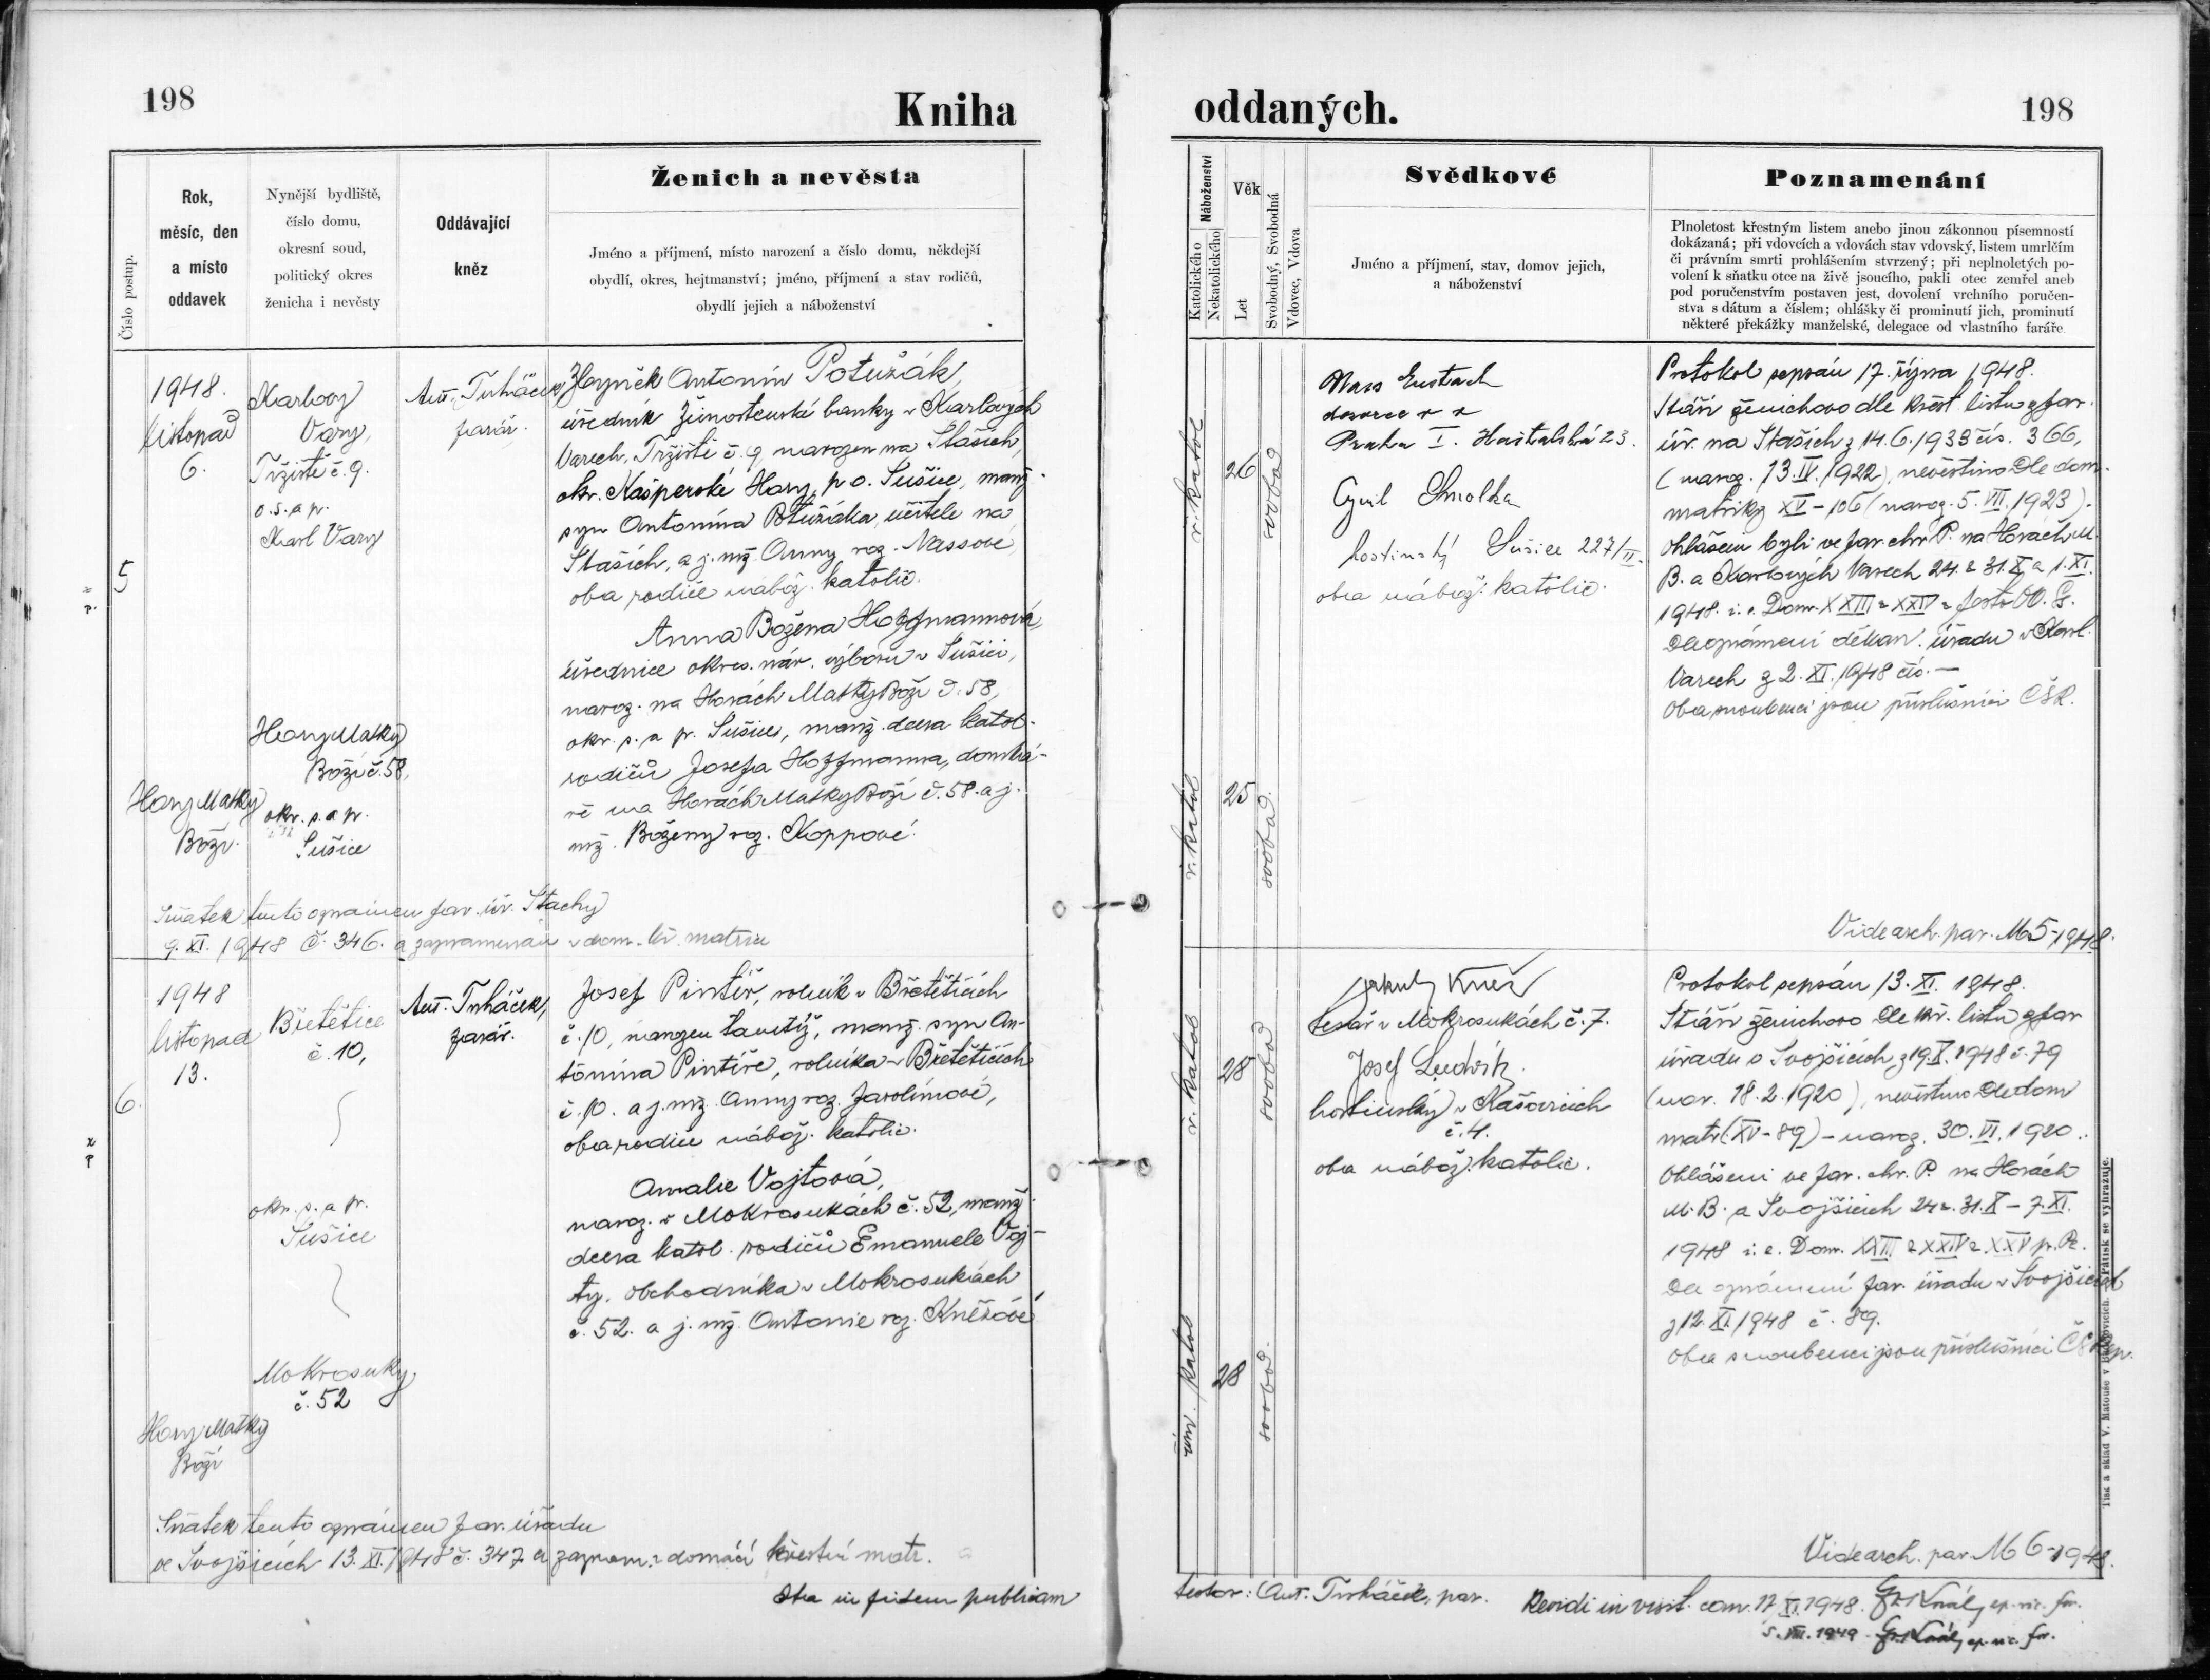 198
Kniha
Číslo postup.
Rok,
měsíc, den
a místo
oddavek
Nynější bydliště,
číslo domu,
okresní soud,
politický okres
ženicha i nevěsty
Oddávající
kněz
Ženich a nevěsta
Jméno a příjmení, místo narození a číslo domu, někdejší
obydlí, okres, hejtmanství; jméno, příjmení a stav rodičů,
obydlí jejich a náboženství
5
1948.
listopad
6.
Hory Matky
Boží.
Karlovy
Vary,
Tržiště č. 9.
o. s. a p.
Karl Vary
Hory Matky
Boží č. 58,
okr. s. a p.
Sušice
Ant. Trháček
farář.
Hynek Antonín Potužák,
úředník Živnostenské banky v Karlových
Varech, Tržiště č. 9, narozen na Stašich,
okr. Kašperské Hory, p. o. Sušice, manž.
syn Antonína Potužáka, učitele na
Stašich, a j. mž. Anny roz. Nassové,
oba rodiče nábož. katolic.
Anna Božena Hoffmannová,
úřednice okres. nár. výboru v Sušici,
naroz. na Horách Matky Boží č. 58,
okr. s. a p. Sušice, manž. dcera katol.
rodičů Josefa Hoffmanna, domká-
ře na Horách Matky Boží č. 58. a j.
mž. Boženy roz. Koppové.
Sňatek tento oznámen far. úř. Stachy
9. XI. 1948 č. 346. a zaznamenán v dom. kř. matrice
6.
1948
listopad
13.
Hory Matky
Boží
Břetětice
č. 10,
okr. s. a p.
Sušice
Mokrosuky
č. 52
Ant. Trháček,
farář.
Josef Pintíř, rolník v Břetěticích
č. 10, narozen tamtéž, manž. syn An-
tonína Pintíře, rolníka v Břetěticích
č. 10. a j. mž. Anny roz. Jarolímové,
oba rodiče nábož. katolic.
Amalie Vojtová,
naroz. v Mokrosukách č. 52, manž.
dcera katol. rodičů Emanuele Voj-
ty, obchodníka v Mokrosukách
č. 52. a j. mž. Antonie roz. Kněžové
Sňatek tento oznámen far. úřadu
ve Svojšicích 13. XI. 1948 č. 347 a zaznam. v domácí křestní matr.
Ita in fidem publicam
oddaných.
198
Náboženství
Katolického
Nekatolického
Věk
Let
Svobodný, Svobodná
Vdovec, Vdova
Svědkové
Jméno a příjmení, stav, domov jejich,
a náboženství
Poznamenání
Plnoletost křestným listem anebo jinou zákonnou písemností
dokázaná; při vdovcích a vdovách stav vdovský, listem umrlčím
či právním smrti prohlášením stvrzený; při neplnoletých po-
volení k sňatku otce na živě jsoucího, pakli otec zemřel aneb
pod poručenstvím postaven jest, dovolení vrchního poručen-
stva s dátum a číslem; ohlášky či prominutí jich, prominutí
některé překážky manželské, delegace od vlastního faráře
ř. katol
26
svobod
ř. katol
25
svobod.
Nass Eustach
Praha I. Haštalská 23.
Cyril Smolka
hostinský Sušice 227/II.
oba nábož. katolic.
Protokol sepsán 17. října 1948.
Stáří ženichovo dle křest. listu z far.
úř. na Stašich z 14. 6. 1938 čís. 366,
(naroz. 13. IV. 1922), nevěstino dle dom.
matriky XV - 106 (naroz. 5. VII. 1923).
Ohlášeni byli ve far. chr. P. na Horách M.
B. a Karlových Varech 24. a 31. X. a 1. XI.
1948. i. e. Dom. XXIII a XXIV a festo OO. S.
Dle oznámení děkan. úřadu v Karl.
Varech z 2. XI. 1948 čís. —
Oba snoubenci jsou příslušníci ČSR.
Vide arch. par. M 5-1948.
ř. katol
28
svobod
řím. katol
28
svobod.
Jakub Kněz
tesař v Mokrosukách č. 7.
Josef Ludvík.
hostinský v Kašovicích
č. 4.
oba nábož. katolic.
Protokol sepsán 13. XI. 1948.
Stáří ženichovo dle kř. listu z far
úřadu v Svojšicích, z 19. X. 1948 č. 79
(nar. 18. 2. 1920), nevěstino dle dom
matr (XV-89) - naroz. 30. VI. 1920.
Ohlášeni ve far. chr. P. na Horách
M. B. a Svojšicích 24. a 31. X - 7. XI.
1948 i. e. Dom. XXIII a XXIV a XXV p. P.
Dle oznámení far. úřadu v Svojšicích
z 12. XI. 1948 č. 89.
Oba snoubenci jsou příslušníci
Vide arch. par. M 6-1948.
testor: Ant. Trháček, par.
Revidi in visit. can. 17. XI. 1948. Fr. Král, ep. vic. for.
5. VIII. 1949 - Fr. Král, ep. vic. for.
Tisk a sklad V. Matouše v . Pátisk se vyhrazuje.